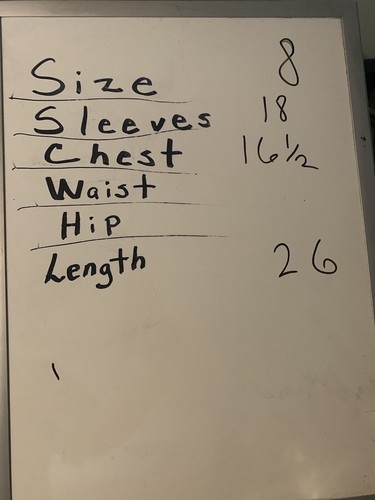 Size 8
Sleeves 18
Chest 16 1/2
Waist
Hip
Length 26